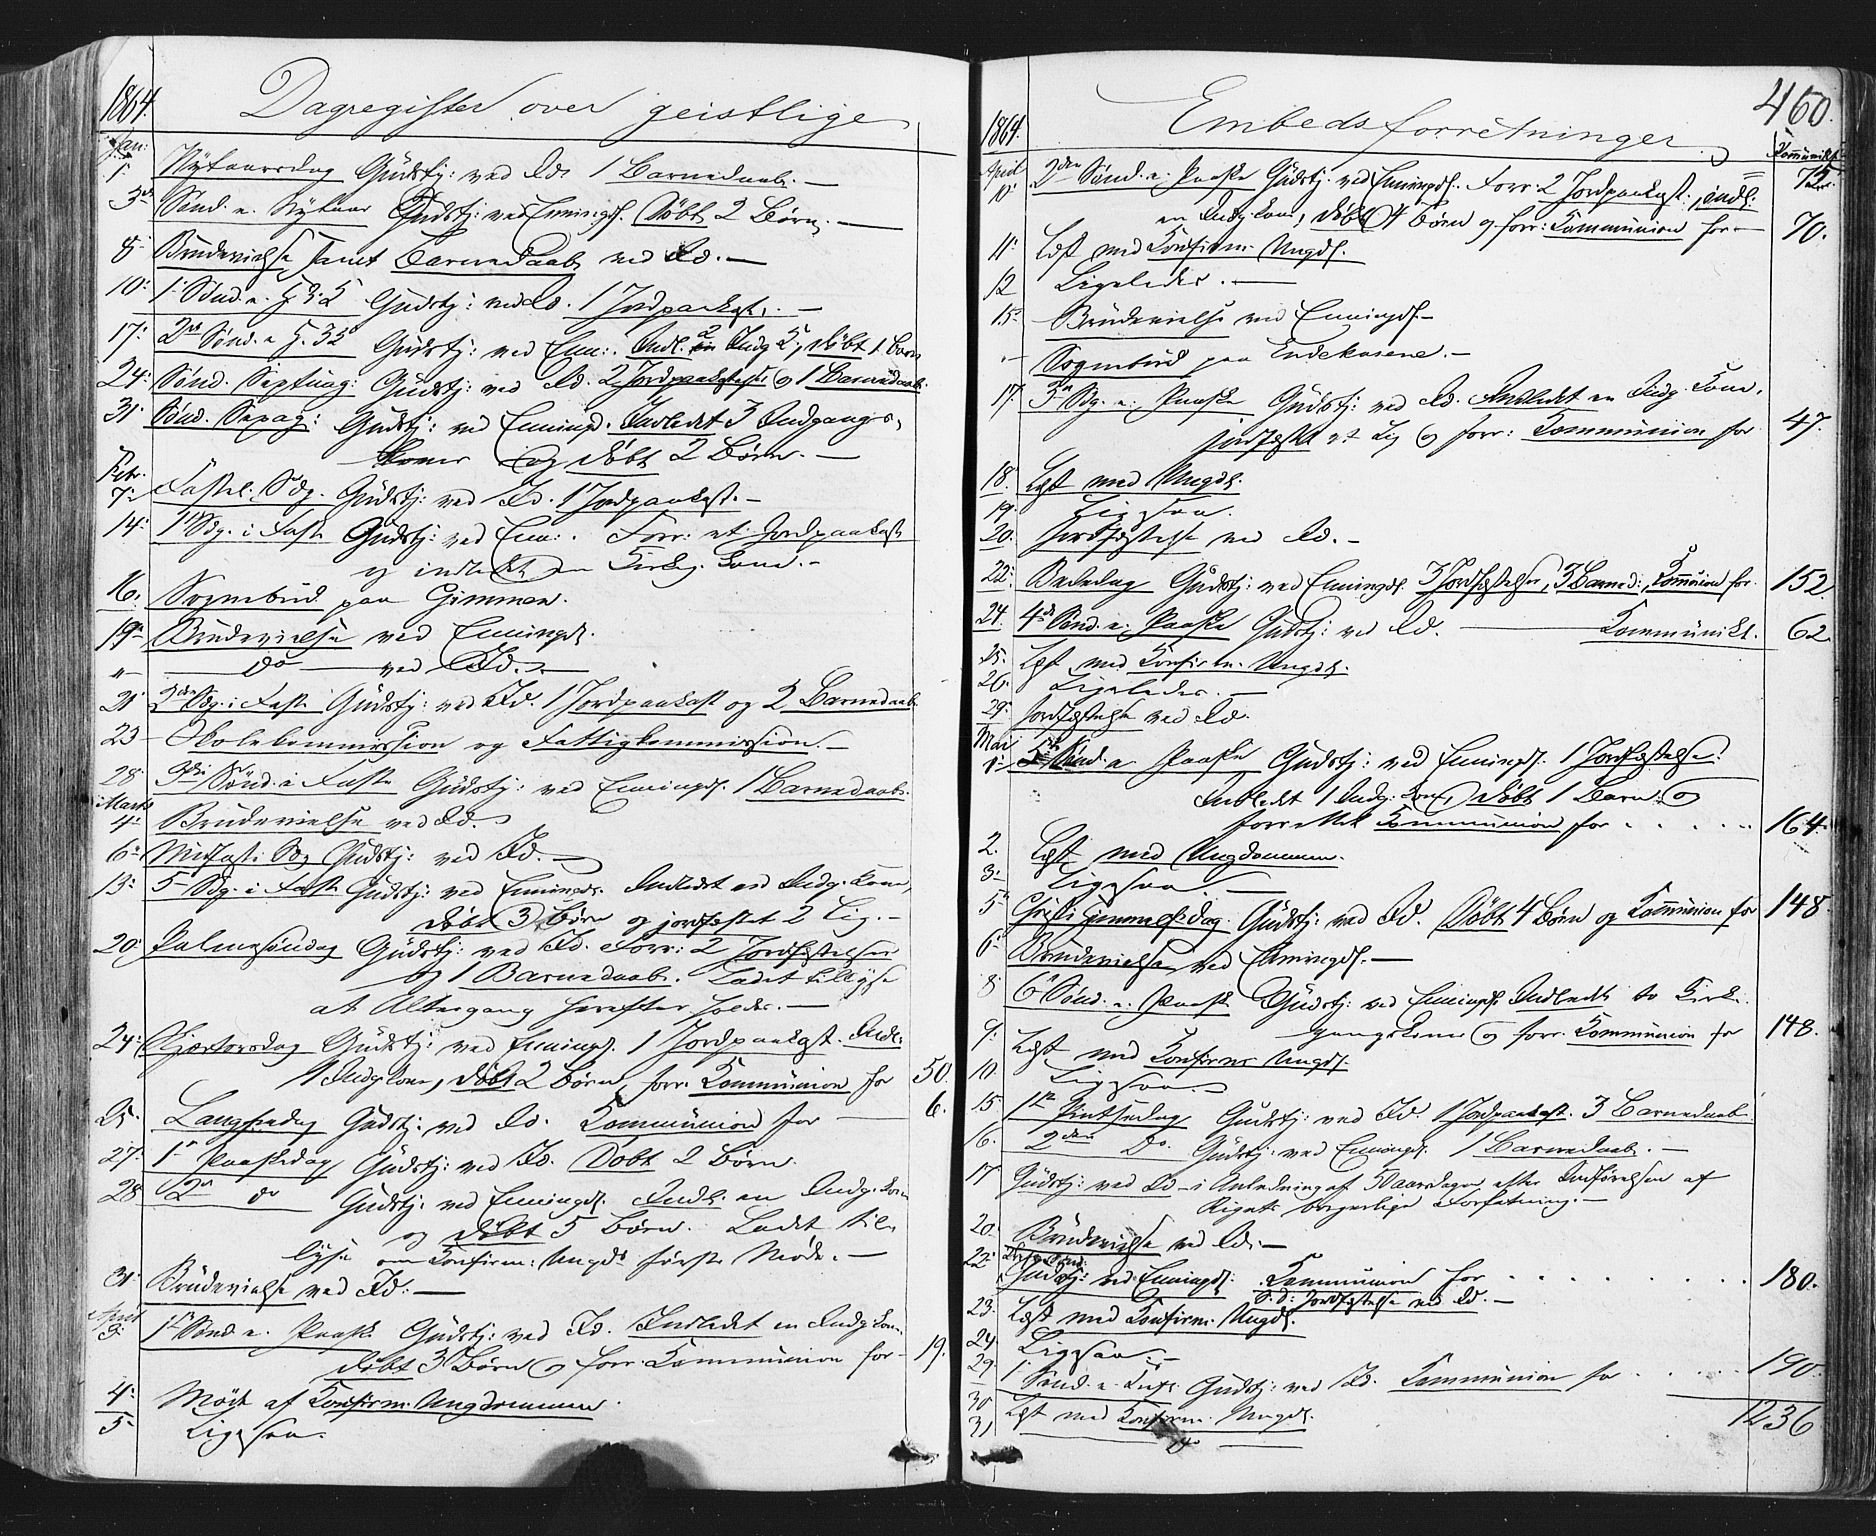 1864. Dagregister over geistlige
Jan:
1: Nytaarsdag Gudstj: ved Id. 1 Barnedaab. —
3de Sønd. e. Nytaar Gudstj: ved Enningd. Døbt 2 Børn. —
8 Brudevielse, samt Barnedaab ved Id. —
10: 1. Sønd. e. H. 3. K. Gudstj: ved Id. 1 Jordpaakast. —
17: 2den Sønd. e. H. 3 K. Gudstj: ved Enn: Indl. 2 Indg. K, døbt 1 Barn
24: Sønd. Septuag: Gudstj: ved Id. 2 Jordpaakastelser og 1 Barnedaab.
31: Sønd. Sexag: Gudstj: ved Enningd. Indledet 3 Indgangs-
koner og døbt 2 Børn. —
Febr.
7: Fastel. Sdg. Gudstj: ved Id. 1 Jordpaakast. —
14: 1 Sdg. i Faste Gudstj: ved Enn: Forr: et Jordpaakast
og indledet en Kirkg. Kone. —
16. Sognebud paa
19de Brudevielse ved Enningd.
" — do — ved Id. —
21 2den Sdg. i Faste Gudstj: ved Id. 1 Jordpaakast og 2 Barnedaab
23 — Skolekommission og Fattigkommission. —
28 3die Sønd. i Faste Gudstj: ved Enningd. 1 Barnedaab.
Marts
4: Brudevielse ved Id.
6: Midfaste Sdg Gudstj: ved Id. —
13: 5 Sdg. i Faste Gudstj: ved Enningd. Indledet en Indg. Kone,
døbt 3 Børn og jordfæstet 2 Lig. —
20: Palmesøndag Gudstj: ved Id. Forr: 2 Jordfæstelser
og 1 Barnedaab. Ladet tillyse
at Altergang herefter holdes. —
24: Skjærtorsdag Gudstj: ved Enningd. 1 Jordpaakast. Indl:
1 Indg Kone, døbt 2 Børn, forr. Kommunion for 50.
25. Langfredag Gudstj: ved Id. Kommunion for — 6.
27: 1ste Paaskedag Gudstj: ved Id. Døbt 2 Børn.
28 2den do Gudstj: ved Enningd. Indl: en Indg. Kone
og døbt 5 Børn. Ladet til-
lyse om Konfirm: Ungds første Møde. —
31: Brudevielse ved Id: —
April
3: 1ste Sønd. e. Paaske Gudstj: ved Id. Indledet en Indg Kone
døbt 3 Børn og forr. Kommunion for — 19.
4: Mødt af Konfirm. Ungdommen.
5: Ligesaa.
1864. Embedsforretninger. 460.
Kommunikt.
April
10: 2den Sønd. e. Paaske Gudstj: ved Enningd. Forr: 2 Jordpaakast:, indl:
en Indg. Kone, døbt 4 Børn og forr: Kommunion for — 70.
11: Læst med Konfirm. Ungd.
12 Ligeledes. —
15: Brudevielse ved Enningd. —
" — Sognebud paa
17. 3die Sdg. e. Paaske Gudstj: ved Id. Indledet en Indg. Kone,
jordfæstet et Lig og forr: Kommunion for 47.
18. Læst med Ungd.
19. Ligesaa.
20. Jordfæstelse ved Id. —
22: Bededag Gudstj: ved Enningd. 3 Jordfæstelser, 3 Barned:, Kommunion for. 152
24. 4de Sønd. e. Paaske Gudstj: ved Id. — Kommunikt. 62.
25. Læst med Konfirm. Ungd.
26. Ligeledes. —
29. Jordfæstelse ved Id.
Mai
1: 5te Sønd. e. Paaske Gudstj: ved Enningd. 1 Jordfæstelse.
Indledet 1 Indg. Kone, døbt 1 Barn og
forrettet Kommunion for . . . . . 164.
2. Læst med Ungdommen.
3. Ligesaa. —
5 Christi Himmelf.dag. Gudstj: ved Id. Døbt 4 Børn og Kommunion for 148.
6 Brudevielse ved Enningd. —
8 6te Sønd. e. Paaske Gudstj: ved Enningd. Indledt to Kirke-
gangskoner og forr. Kommunion for 148.
9. Læst med Konfirm. Ungd.
10. Ligesaa.
15 1ste Pintsedag Gudstj: ved Id. 1 Jordpaakast. 3 Barnedaab
16. 2den Do. Gudstj: ved Enningd. 1 Barnedaab. —
17 Gudstj: ved Id i Anledning af 50aarsdagen efter Indførelsen af
Rigets borgerlige Forfatning. —
20. Brudevielse ved Id. —
22
Gudstj: ved Enningd: Kommunion for . . . . . . . . 180.
S. d: Jordfæstelse ved Id. —
23. Læst med Konfirm. Ungd.
24. Ligesaa. —
29. 1. Sønd. e. Trefs Gudstj: ved Id. Kommunion for . . . . . 190.
30 Læst med Konfirm. Ungd.
31 1236